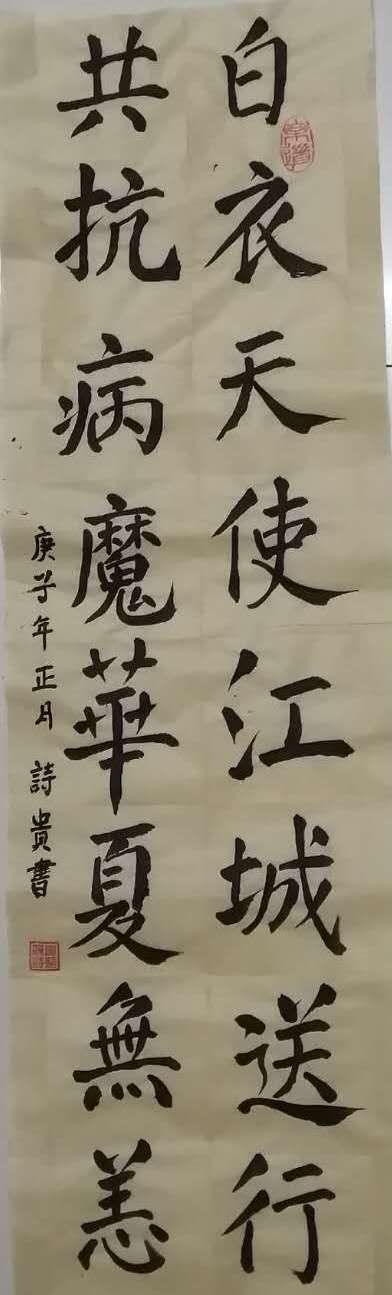 白衣天使江城送行
共抗病魔華夏無恙
庚子年正月 詩貴書